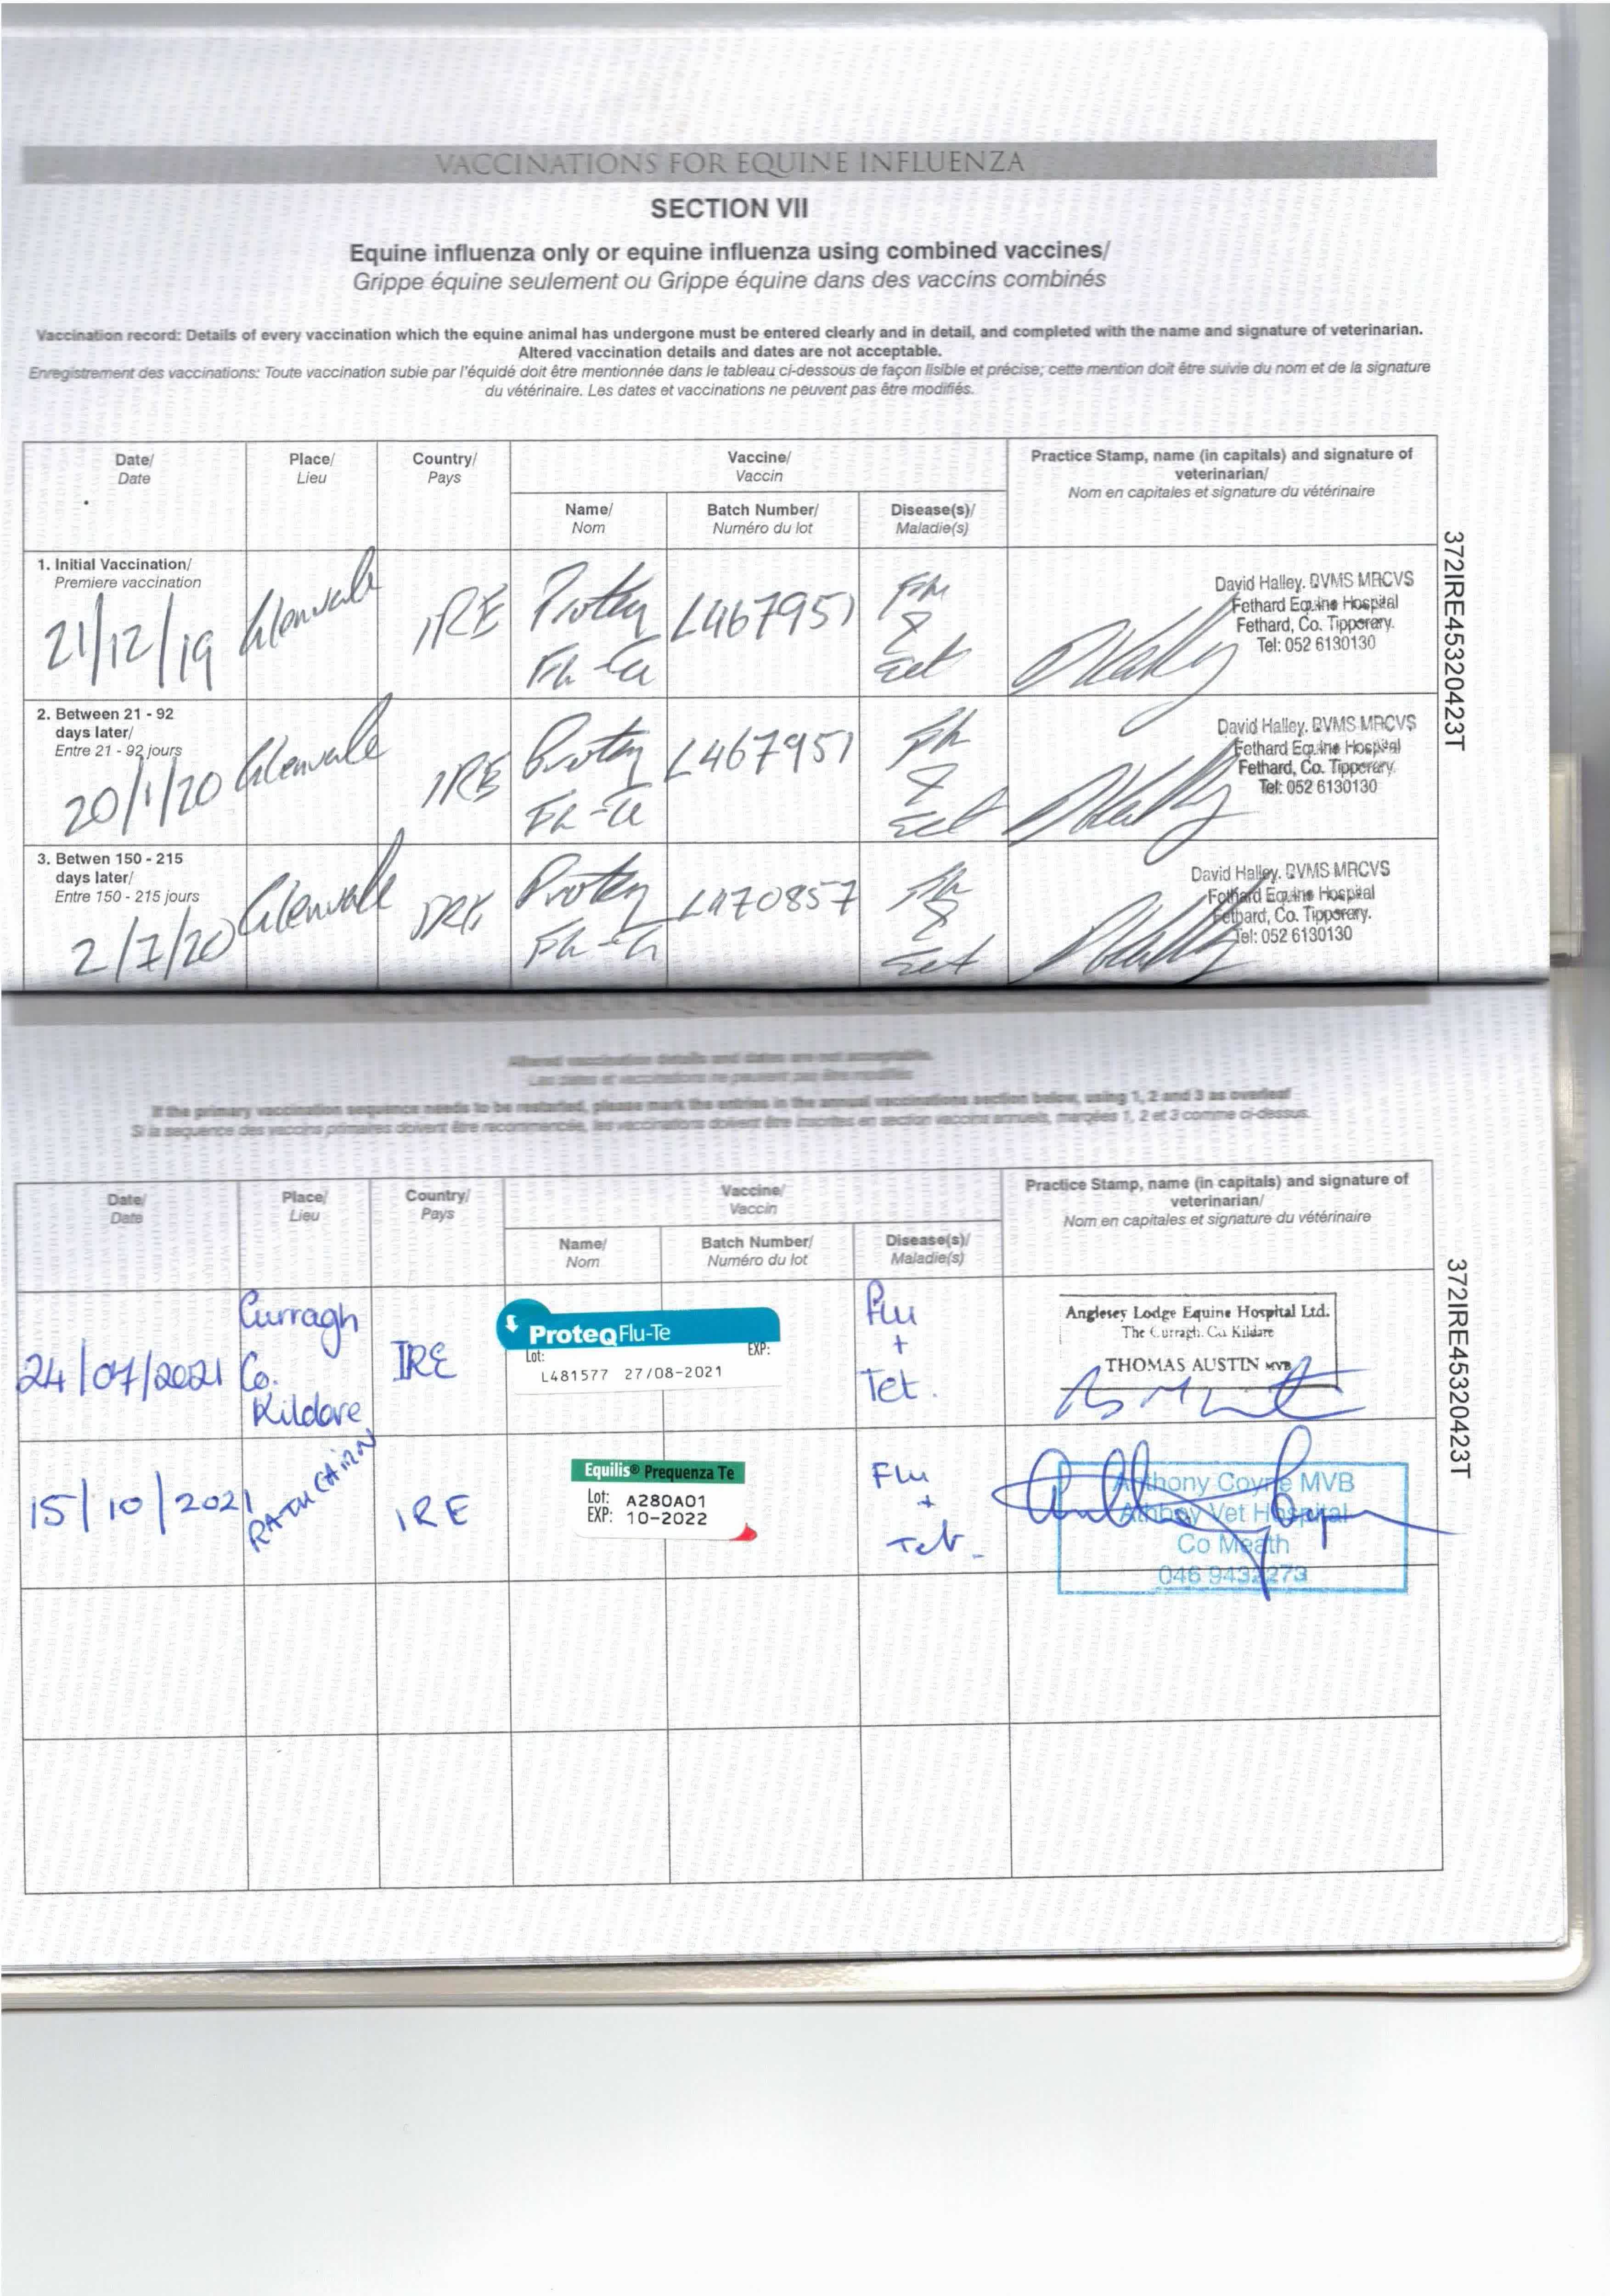 VACCINATIONS FOR EQUINE INFLUENZA
SECTION VII
Equine influenza only or equine influenza using combined vaccines/
Grippe équine seulement ou Grippe équine dans des vaccins combinés
Vaccination record: Details of every vaccination which the equine animal has undergone must be entered clearly and in detail, and completed with the name and signature of veterinarian.
Altered vaccination details and dates are not acceptable.
Enregistrement des vaccinations: Toute vaccination subie par l'équidé doit être mentionnée dans le tableau ci-dessous de façon lisible et précise; cette mention doit être suivie du nom et de la signature
du vétérinaire. Les dates et vaccinations ne peuvent pas être modifiés.
Date/
Date
Place/
Lieu
Country/
Pays
Vaccine/
Vaccin
Name/
Nom
Batch Number/
Numéro du lot
Disease(s)/
Maladie(s)
Practice Stamp, name (in capitals) and signature of
veterinarian/
Nom en capitales et signature du vétérinaire
1. Initial Vaccination/
Premiere vaccination
21/12/19
Glenvale
IRE
Proteq
Flu-Te
L467951
Flu
&
Tet
David Halley. BVMS MRCVS
Fethard Equine Hospital
Fethard, Co. Tipperary.
Tel: 052 6130130
2. Between 21 - 92
days later/
Entre 21 - 92 jours
20/1/20
Glenvale
IRE
Proteq
Flu-Te
L467951
Flu
&
Tet
David Halley. BVMS MRCVS
Fethard Equine Hospital
Fethard, Co. Tipperary.
Tel: 052 6130130
3. Betwen 150 - 215
days later/
Entre 150 - 215 jours
2/7/20
Glenvale
IRE
Proteq
Flu-Te
L470857
Flu
&
Tet
David Halley. BVMS MRCVS
Fethard Equine Hospital
Fethard, Co. Tipperary.
Tel: 052 6130130
372IRE45320423T
Altered vaccination details and dates are not acceptable.
Les dates et vaccinations ne peuvent pas être modifiés
If the primary vaccination sequence needs to be restarted, please mark the entries in the annual vaccinations section below, using 1, 2 and 3 as overleaf
Si la sequence des vaccins primaires doivent être recommencée, les vaccinations doivent être inscrites en section vaccins annuels, marquées 1, 2 et 3 comme ci-dessus.
Date/
Date
Place/
Lieu
Country/
Pays
Vaccine/
Vaccin
Name/
Nom
Batch Number/
Numéro du lot
Disease(s)/
Maladie(s)
Practice Stamp, name (in capitals) and signature of
veterinarian/
Nom en capitales et signature du vétérinaire
24/07/2021
Curragh
Co.
Kildare
IRE
ProteqFlu-Te
Lot:
EXP:
L481577 27/08-2021
Flu
+
Tet.
Anglesey Lodge Equine Hospital Ltd.
The Curragh. Co. Kildare
THOMAS AUSTIN MVB
15/10/2021
RATHCAIRN
IRE
Equilis® Prequenza Te
Lot: A280A01
EXP: 10-2022
Flu
+
Tet.
Anthony Coyne MVB
Athboy Vet Hospital
Co Meath
046 9432273
372IRE45320423T